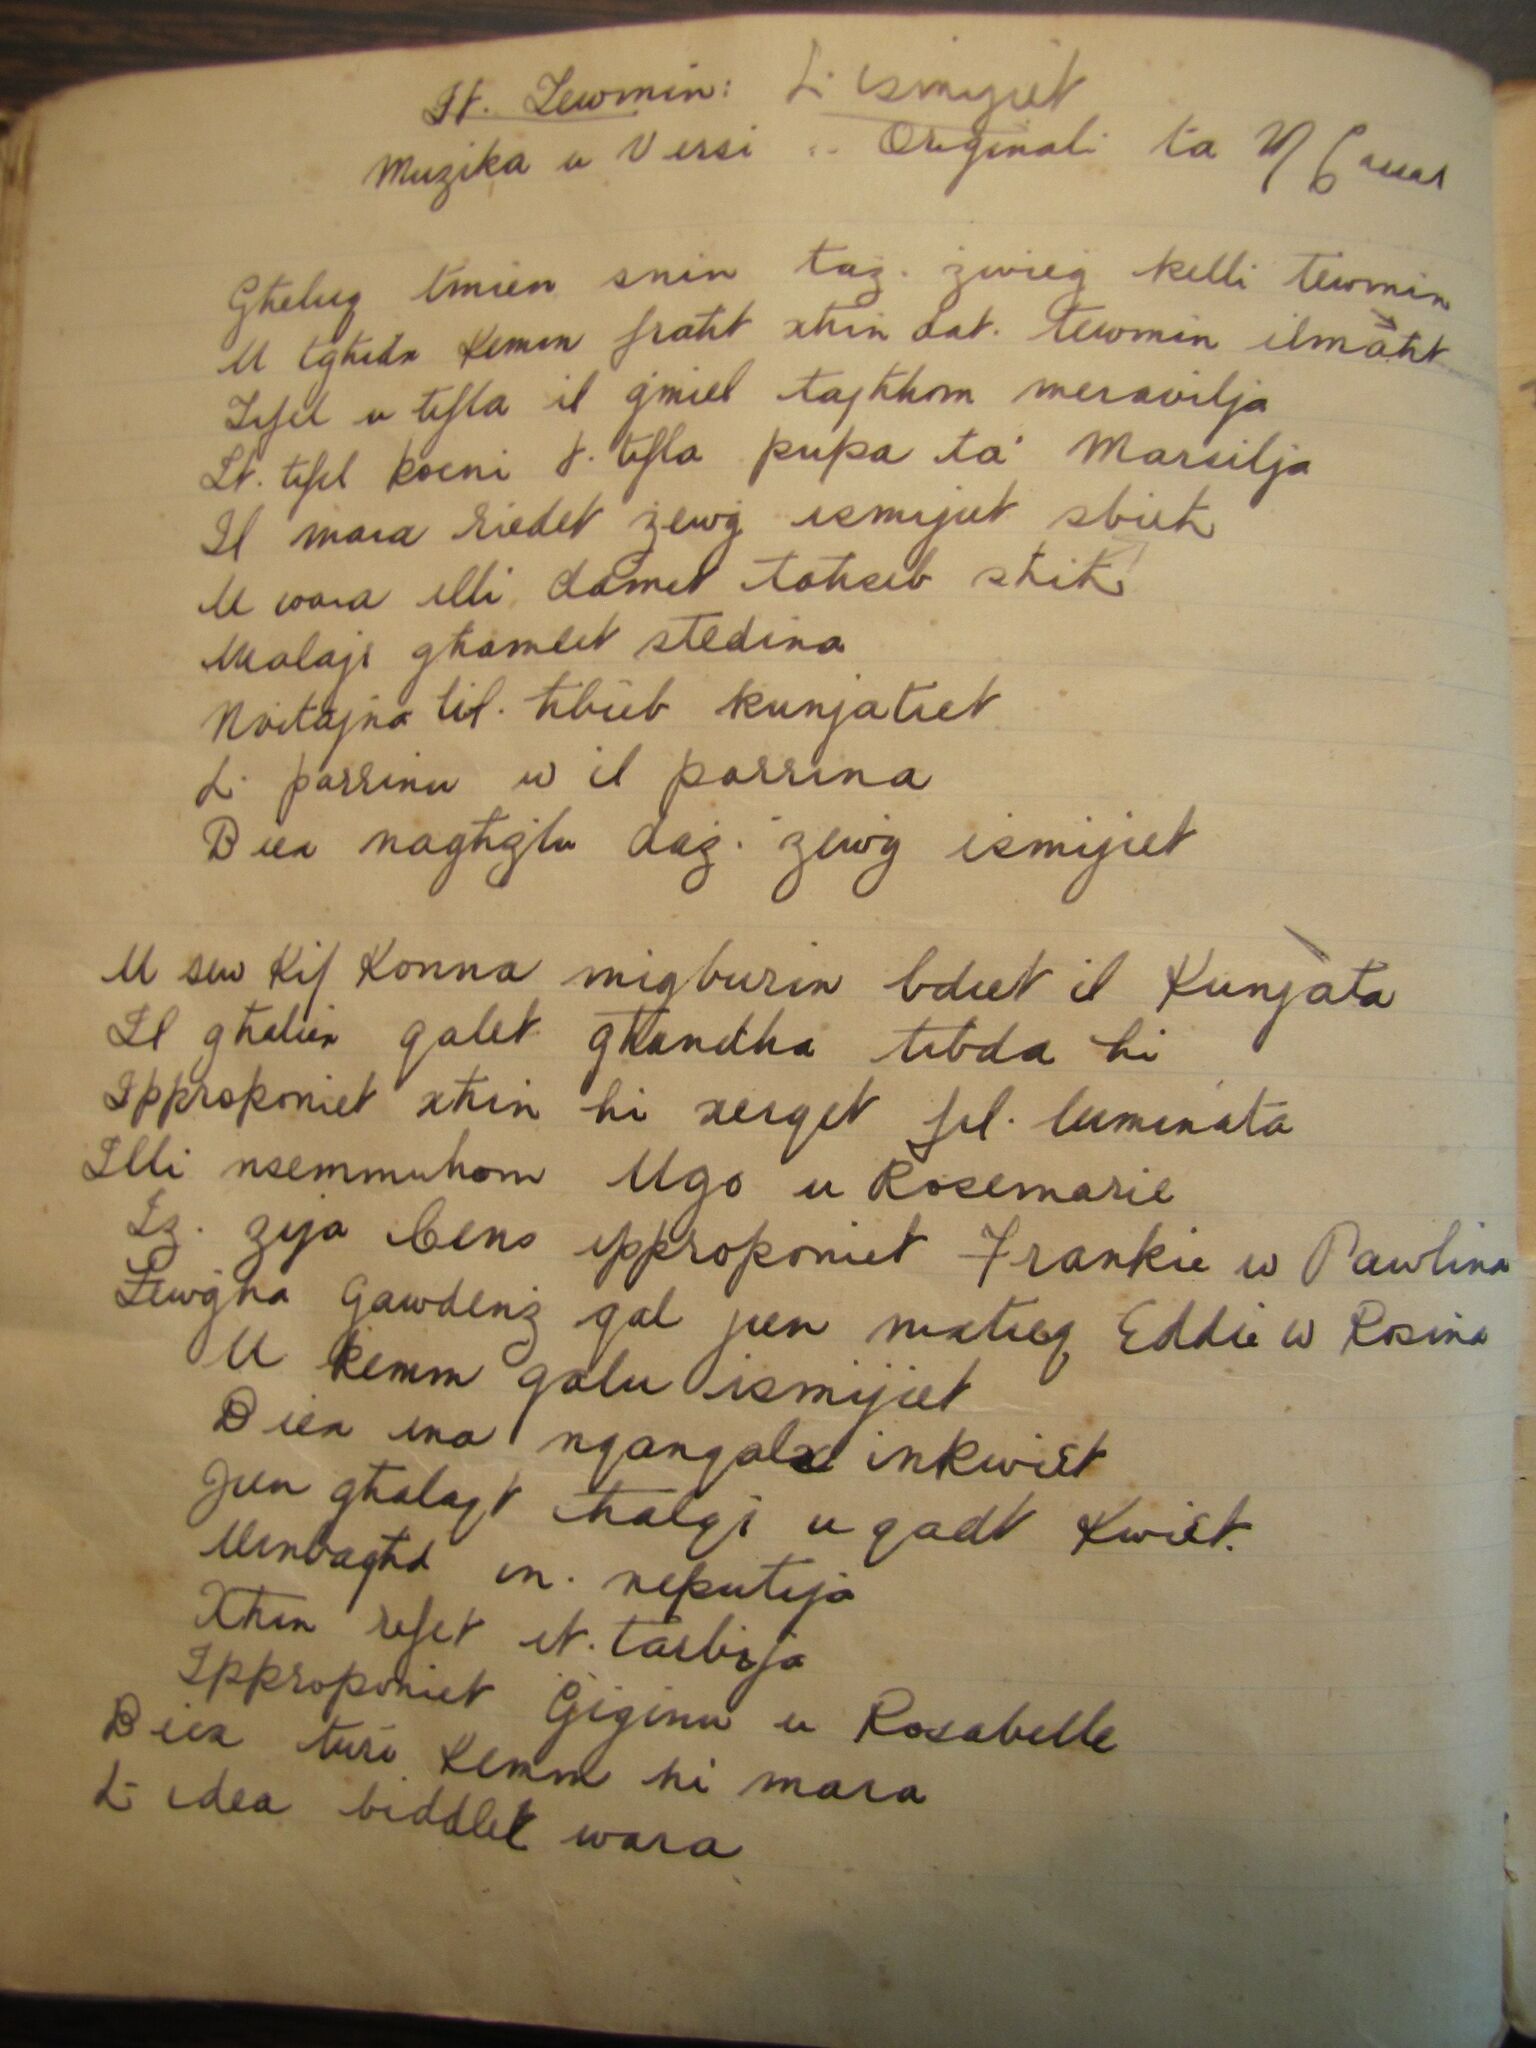 It. Tewmin: L. ismijiet
Muzika u Versi .. Originali ta
Gheluq tmien snin taz. zwieġ kelli tewmin
U tghidx kemm fraht xhin dat. tewmin ilmaht
Tifel u tifla il ġmiel tajhhom meravilja
It. tifel kocni t. tifla pupa ta' Marsilja
Il mara riedet żewġ ismijiet sbieh
U wara illi damet tahseb shih
Malajr ghamlet stedina
Noitajna lil. hbieb kunjatiet
L. parrinu w il parrina
Biex naghżlu daż. żewġ ismijiet
U sew kif konna miġburin bdiet il Kunjata
Il ghaliex qalet ghandha tibda hi
Ipproponiet xhin hi xerqet fil. luminata
Illi nsemmuhom Ugo u Rosemarie
Iz. zija Cens ipproponiet Frankie w Pawlina
Zewġha Gawdenz qal jien nixtieq Eddie w Rosina
U kemm qalu ismijiet
Biex ina nqanqalx inkwiet
Jien ghalaqt halqi u qadt kwiet.
Minbaghd in. neputija
Xhin refet it. tarbija
Ipproponiet Ġiġinu u Rosabelle
Biex turi kemm hi mara
L- idea biddlet wara